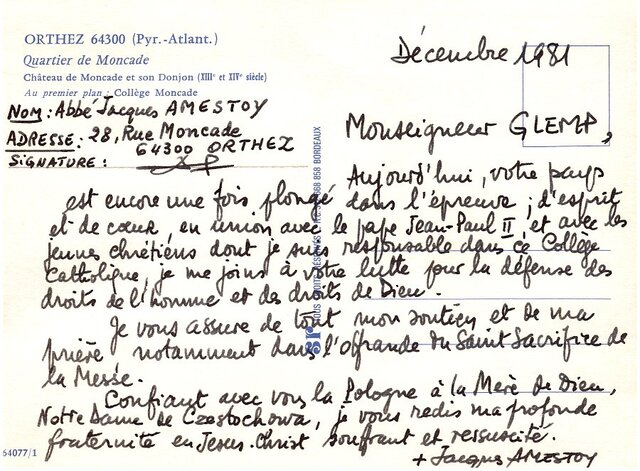 ORTHEZ 64300 (Pyr.-Atlant.)
Quartier de Moncade
Château de Moncade et son Donjon (XIIIe et XIVe siècle)
Au premier plan : Collège Moncade
NOM : Abbé Jacques AMESTOY
ADRESSE : 28, Rue Moncade
64300 ORTHEZ
SIGNATURE :
Décembre 1981
Monseigneur GLEMP,
Aujourd'hui, votre pays
est encore une fois plongé dans l'épreuve ; d'esprit
et de cœur, en union avec le pape Jean-Paul II et avec les
jeunes chrétiens dont je suis responsable dans ce Collège
Catholique, je me joins à votre lutte pour la défense des
droits de l'homme et des droits de Dieu.
Je vous assure de tout mon soutien et de ma
prière notamment dans l'offrande du Saint Sacrifice de
la Messe.
Confiant avec vous la Pologne à la Mère de Dieu,
Notre Dame de Czestochowa, je vous redis ma profonde
fraternité en Jesus-Christ souffrant et ressuscité.
+ Jacques AMESTOY
64077/1
sr
858 BORDEAUX